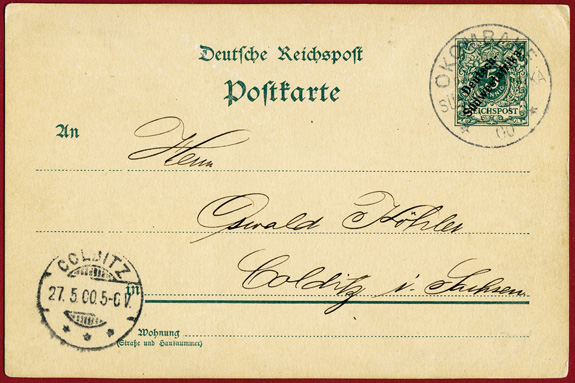 Deutsche Reichspost
Postkarte
OKOMBAHE
5
REICHSPOST
Deutsch-
Südwestafrika
00
An
Herrn
Oswald Köhler
Colditz i. Sachsen
in
COLDITZ
27.5.00.5-6V.
Wohnung
(Straße und Hausnummer)